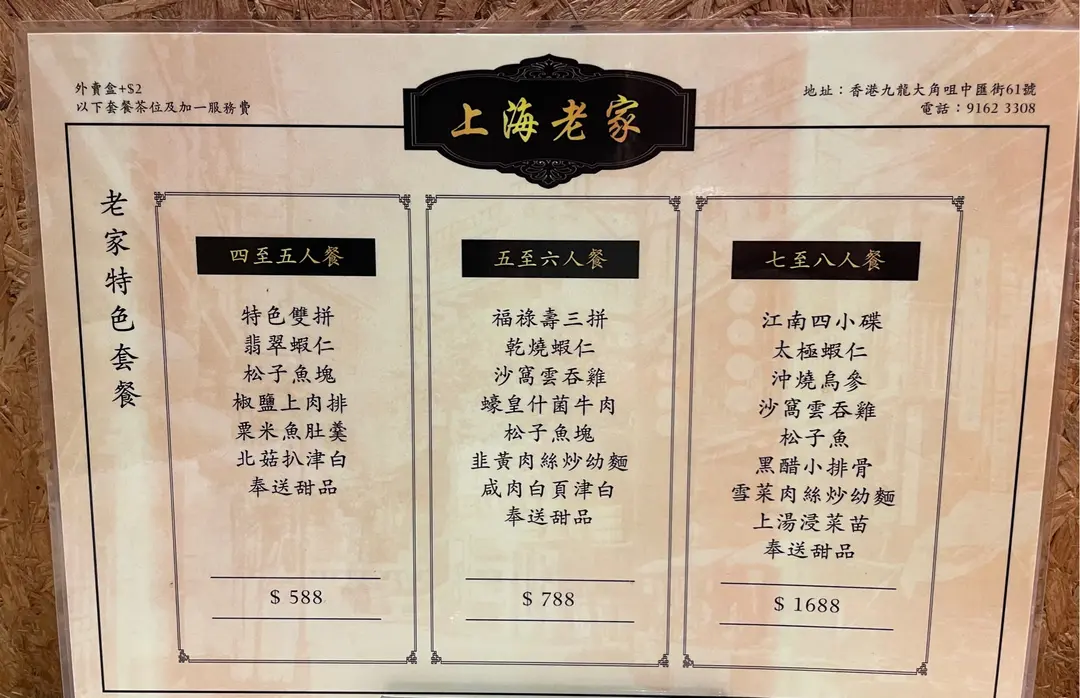 外賣盒+$2
以下套餐茶位及加一服務費
上海老家
地址：香港九龍大角咀中匯街61號
電話：9162 3308
老家特色套餐
四至五人餐
特色雙拼
翡翠蝦仁
松子魚塊
椒鹽上肉排
粟米魚肚羹
北菇扒津白
奉送甜品
$ 588
五至六人餐
福祿壽三拼
乾燒蝦仁
沙窩雲吞雞
蠔皇什菌牛肉
松子魚塊
韭黃肉絲炒幼麵
咸肉白頁津白
奉送甜品
$ 788
七至八人餐
江南四小碟
太極蝦仁
沖燒烏參
沙窩雲吞雞
松子魚
黑醋小排骨
雪菜肉絲炒幼麵
上湯浸菜苗
奉送甜品
$ 1688